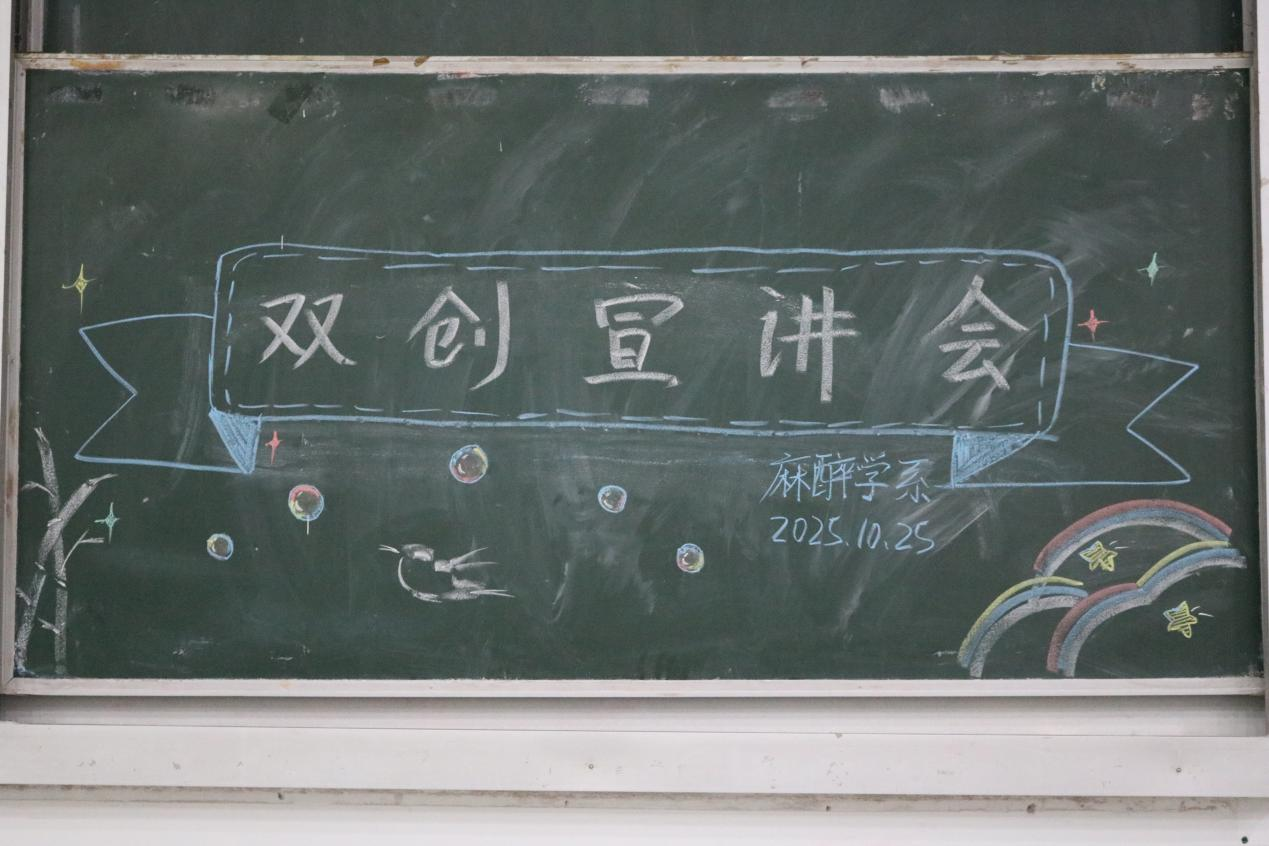 双创宣讲会
麻醉学系
2025.10.25